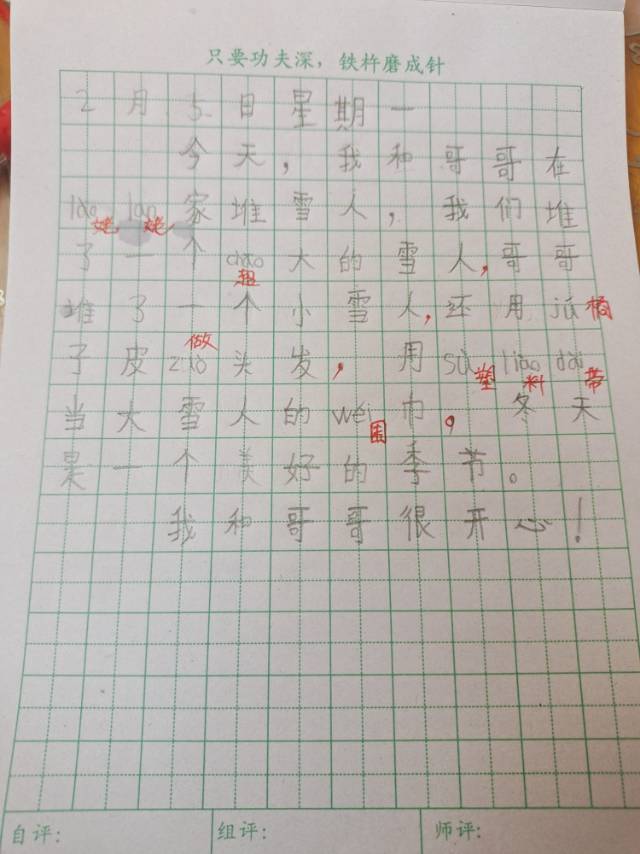 只要功夫深，铁杵磨成针
2月5日星期一
今天，我和哥哥在
lǎo lao家堆雪人，我们堆
姥姥
了一个chāo大的雪人，哥哥
超
堆了一个小雪人，还用jú橘
子皮zuò头发，用sù liào dài
做 塑料带
当大雪人的wéi巾。冬天
围
是一个美好的季节。
我和哥哥很开心！
自评： 组评： 师评：